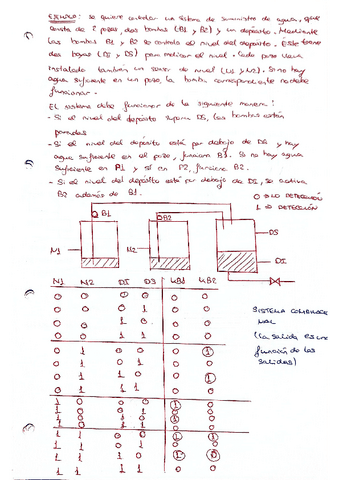 EJEMPLO: se quiere controlar un sistema de suministro de agua, que
consta de 2 pozos, dos bombas (B1 y B2) y un depósito. Mediante
las bombas B1 y B2 se controla el nivel del depósito. Éste tiene
dos boyas (DS y DI) para indicar el nivel. Cada pozo lleva
instalado también un sensor de nivel (N1 y N2). Si no hay
agua suficiente en un pozo, la bomba correspondiente no debe
funcionar.
El sistema debe funcionar de la siguiente manera:
- Si el nivel del depósito supera DS, las bombas están
paradas
- Si el nivel del depósito está por debajo de DS y hay
agua suficiente en el pozo, funciona B1. Si no hay agua
suficiente en P1 y sí en P2, funciona B2.
- Si el nivel del depósito está por debajo de DI, se activa
B2 además de B1.
0 NO DETECCIÓN
1 DETECCIÓN
B1
B2
N1
N2
DS
DI
N1 N2 DI DS KB1 KB2
0 0 0 0 0 0
0 0 0 1 0 0
0 0 1 0 0 0
0 0 1 1 0 0
0 1 0 0 0 1
0 1 0 1 0 0
0 1 1 0 0 1
0 1 1 1 0 0
1 0 0 0 1 0
1 0 0 1 0 0
1 0 1 0 1 0
1 0 1 1 0 0
1 1 0 0 1 1
1 1 0 1 0 0
1 1 1 0 1 0
1 1 1 1 0 0
SISTEMA COMBINACIO
NAL
(la salida es una
función de las
salidas)